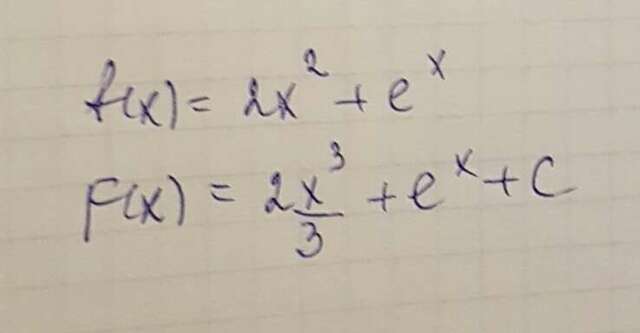 f(x) = 2x² + eˣ
F(x) = 2x³/3 + eˣ + C